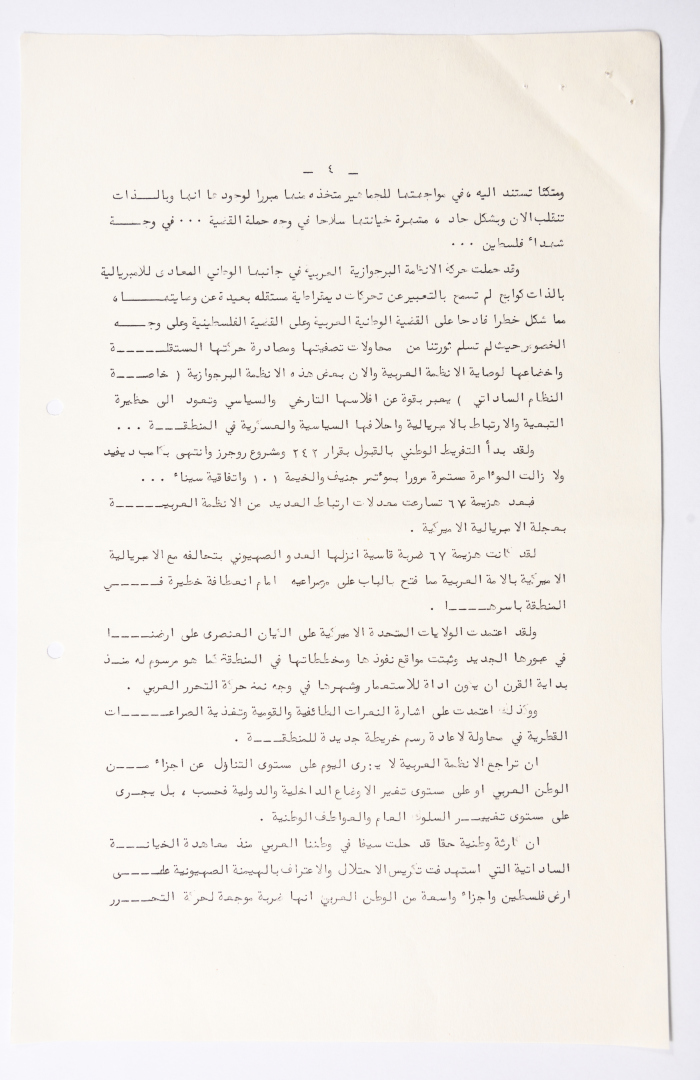 ـ ٤ ـ
ومتكئا تستند اليه ، في مواجهتها للجماهير متخذه منها مبررا لوجودها انها وبالـــذات
تنقلب الان وبشكل حاد ، مشهرة خيانتها سلاحا في وجه حملة القضية ٠٠٠ في وجـــه
شهداء فلسطين ٠٠٠
وقد حملت حركة الانظمة البرجوازية العربية في جانبها الوطني المعادى للامبريالية
بالذات كوابح لم تسمح بالتعبير عن تحركات ديمقراطية مستقله بعيدة عن وصايتهـــا ،
مما شكل خطرا فادحا على القضية الوطنية العربية وعلى القضية الفلسطينية وعلى وجـــه
الخصوص حيث لم تسلم ثورتنا من محاولات تصفيتها ومصادرة حركتها المستقلـــــة
واخضاعها لوصاية الانظمة العربية والان بعض هذه الانظمة البرجوازية ( خاصـــة
النظام الساداتي ) يعبر بقوة عن افلاسها التارخي والسياسي وتعود الى حظيرة
التبعية والارتباط بالامبريالية واحلافها السياسية والعسكرية في المنطقـــة ٠٠٠
ولقد بدأ التفريط الوطني بالقبول بقرار ٢٤٢ ومشروع روجرز وانتهى بكامب ديفيد
ولا زالت المؤامرة مستمرة مرورا بمؤتمر جنيف والخيمة ١٠١ واتفاقية سيناء ٠٠٠
فبعد هزيمة ٦٧ تسارعت معدلات ارتباط العديد من الانظمة العربيـــــة
بعجلة الامبريالية الاميركية .
لقد كانت هزيمة ٦٧ ضربة قاسية انزلها العدو الصهيوني بتحالفه مع الامبريالية
الاميركية بالامة العربية مما فتح بالباب على مصراعيه امام انعطافة خطيرة فـــــي
المنطقة باسرهـــــا .
ولقد اعتمدت الولايات المتحدة الاميركية على الكيان العنصرى على ارضنـــــا
في عبورها الجديد وثبتت مواقع نفوذها ومخططاتها في المنطقة كما هو مرسوم له منـــذ
بداية القرن ان يكون اداة للاستعمار وشهرها في وجه نهضة حركة التحرر العربي .
ووكذلك اعتمدت على اشارة النعرات الطائفية والقومية وتغذية الصراعـــــات
القطرية في محاولة لاعادة رسم خريطة جديدة للمنطقـــــة .
ان تراجع الانظمة العربية لا يجرى اليوم على مستوى التنازل عن اجزاء مـــــن
الوطن العربي او على مستوى تغير الاوضاع الداخلية والدولية فحسب ، بل يجـــرى
على مستوى تغييـــر السلوك العام والعواطف الوطنية .
ان كارثة وطنية حقا قد حلت سيفا في وطننا العربي منذ معاهدة الخيانـــــة
الساداتية التي استهدفت تكريس الاحتلال والاعتراف بالهيمنة الصهيونية علـــــى
ارض فلسطين واجزاء واسعة من الوطن العربي انها ضربة موجعة لحركة التحـــــرر